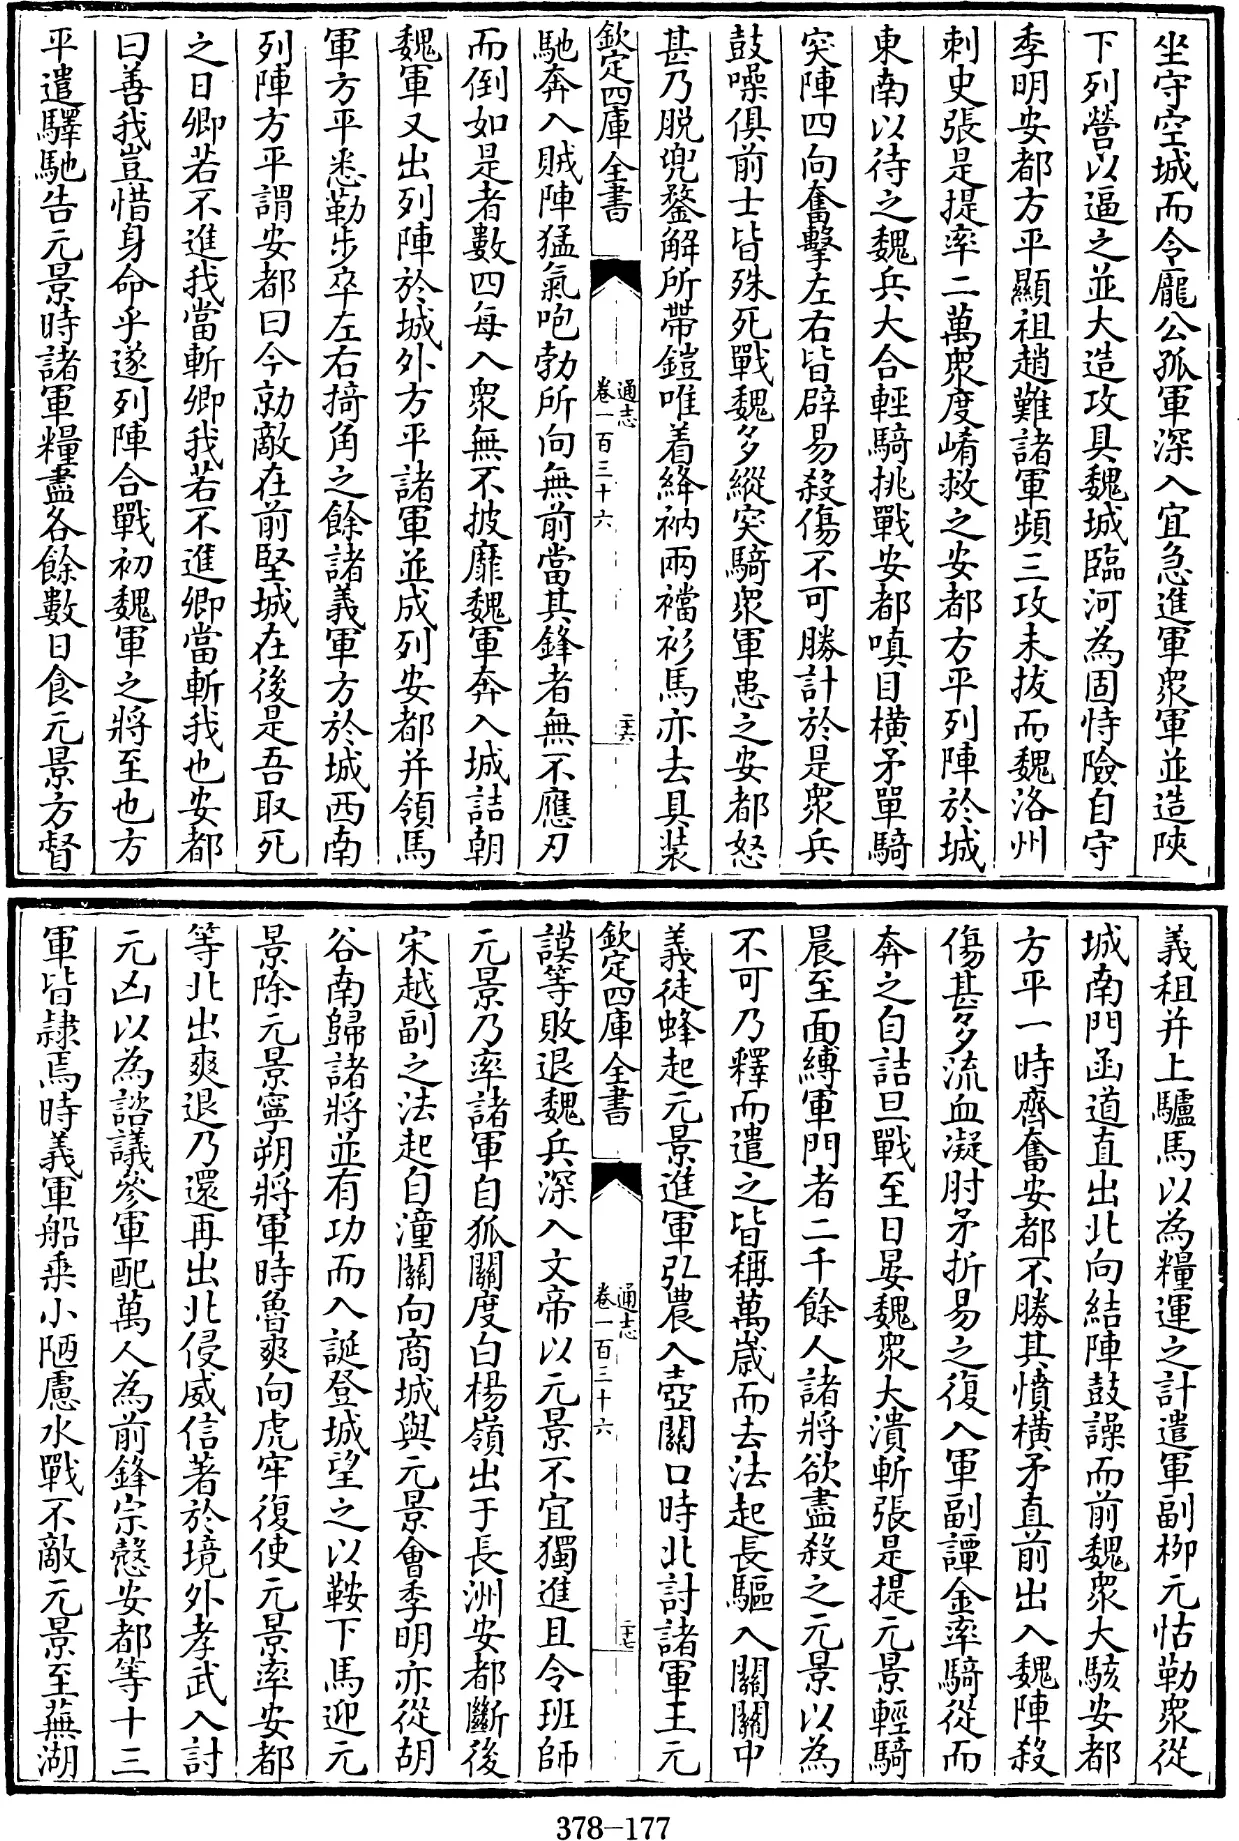 坐守空城而令龎公孤軍深入宜急進軍衆軍並造陜
下列營以逼之並大造攻具魏城臨河為固恃險自守
季明安都方平顯祖趙難諸軍頻三攻未拔而魏洛州
刺史張是提率二萬衆度崤救之安都方平列陣於城
東南以待之魏兵大合輕騎挑戰安都嗔目橫矛單騎
突陣四向奮擊左右皆辟易殺傷不可勝計於是衆兵
鼓噪俱前士皆殊死戰魏多縱突騎衆軍患之安都怒
甚乃脱兜鍪解所帶鎧唯着絳衲兩襠衫馬亦去具装
欽定四庫全書
通志
卷一百三十六
二十六
馳奔入賊陣猛氣咆勃所向無前當其鋒者無不應刃
而倒如是者數四每入衆無不披靡魏軍奔入城詰朝
魏軍又出列陣於城外方平諸軍並成列安都并領馬
軍方平悉勒步卒左右掎角之餘諸義軍方於城西南
列陣方平謂安都曰今勍敵在前堅城在後是吾取死
之日卿若不進我當斬卿我若不進卿當斬我也安都
曰善我豈惜身命乎遂列陣合戰初魏軍之將至也方
平遣驛馳告元景時諸軍糧盡各餘數日食元景方督
義租并上驢馬以為糧運之計遣軍副栁元怙勒衆從
城南門函道直出北向結陣鼓譟而前魏衆大駭安都
方平一時齊奮安都不勝其憤橫矛直前出入魏陣殺
傷甚多流血凝肘矛折易之復入軍副譚金率騎從而
奔之自詰旦戰至日晏魏衆大潰斬張是提元景輕騎
晨至面縛軍門者二千餘人諸將欲盡殺之元景以為
不可乃釋而遣之皆稱萬歲而去法起長驅入關關中
義徒蜂起元景進軍弘農入壺關口時北討諸軍王元
欽定四庫全書
通志
卷一百三十六
二十七
謨等敗退魏兵深入文帝以元景不宜獨進且令班師
元景乃率諸軍自狐關度白楊嶺出于長洲安都斷後
宋越副之法起自潼關向商城與元景會季明亦從胡
谷南歸諸將並有功而入誕登城望之以鞍下馬迎元
景除元景寧朔將軍時魯爽向虎牢復使元景率安都
等北出爽退乃還再出北侵威信著於境外孝武入討
元凶以為諮議參軍配萬人為前鋒宗慤安都等十三
軍皆隷焉時義軍船乗小陋慮水戰不敵元景至蕪湖
378-177